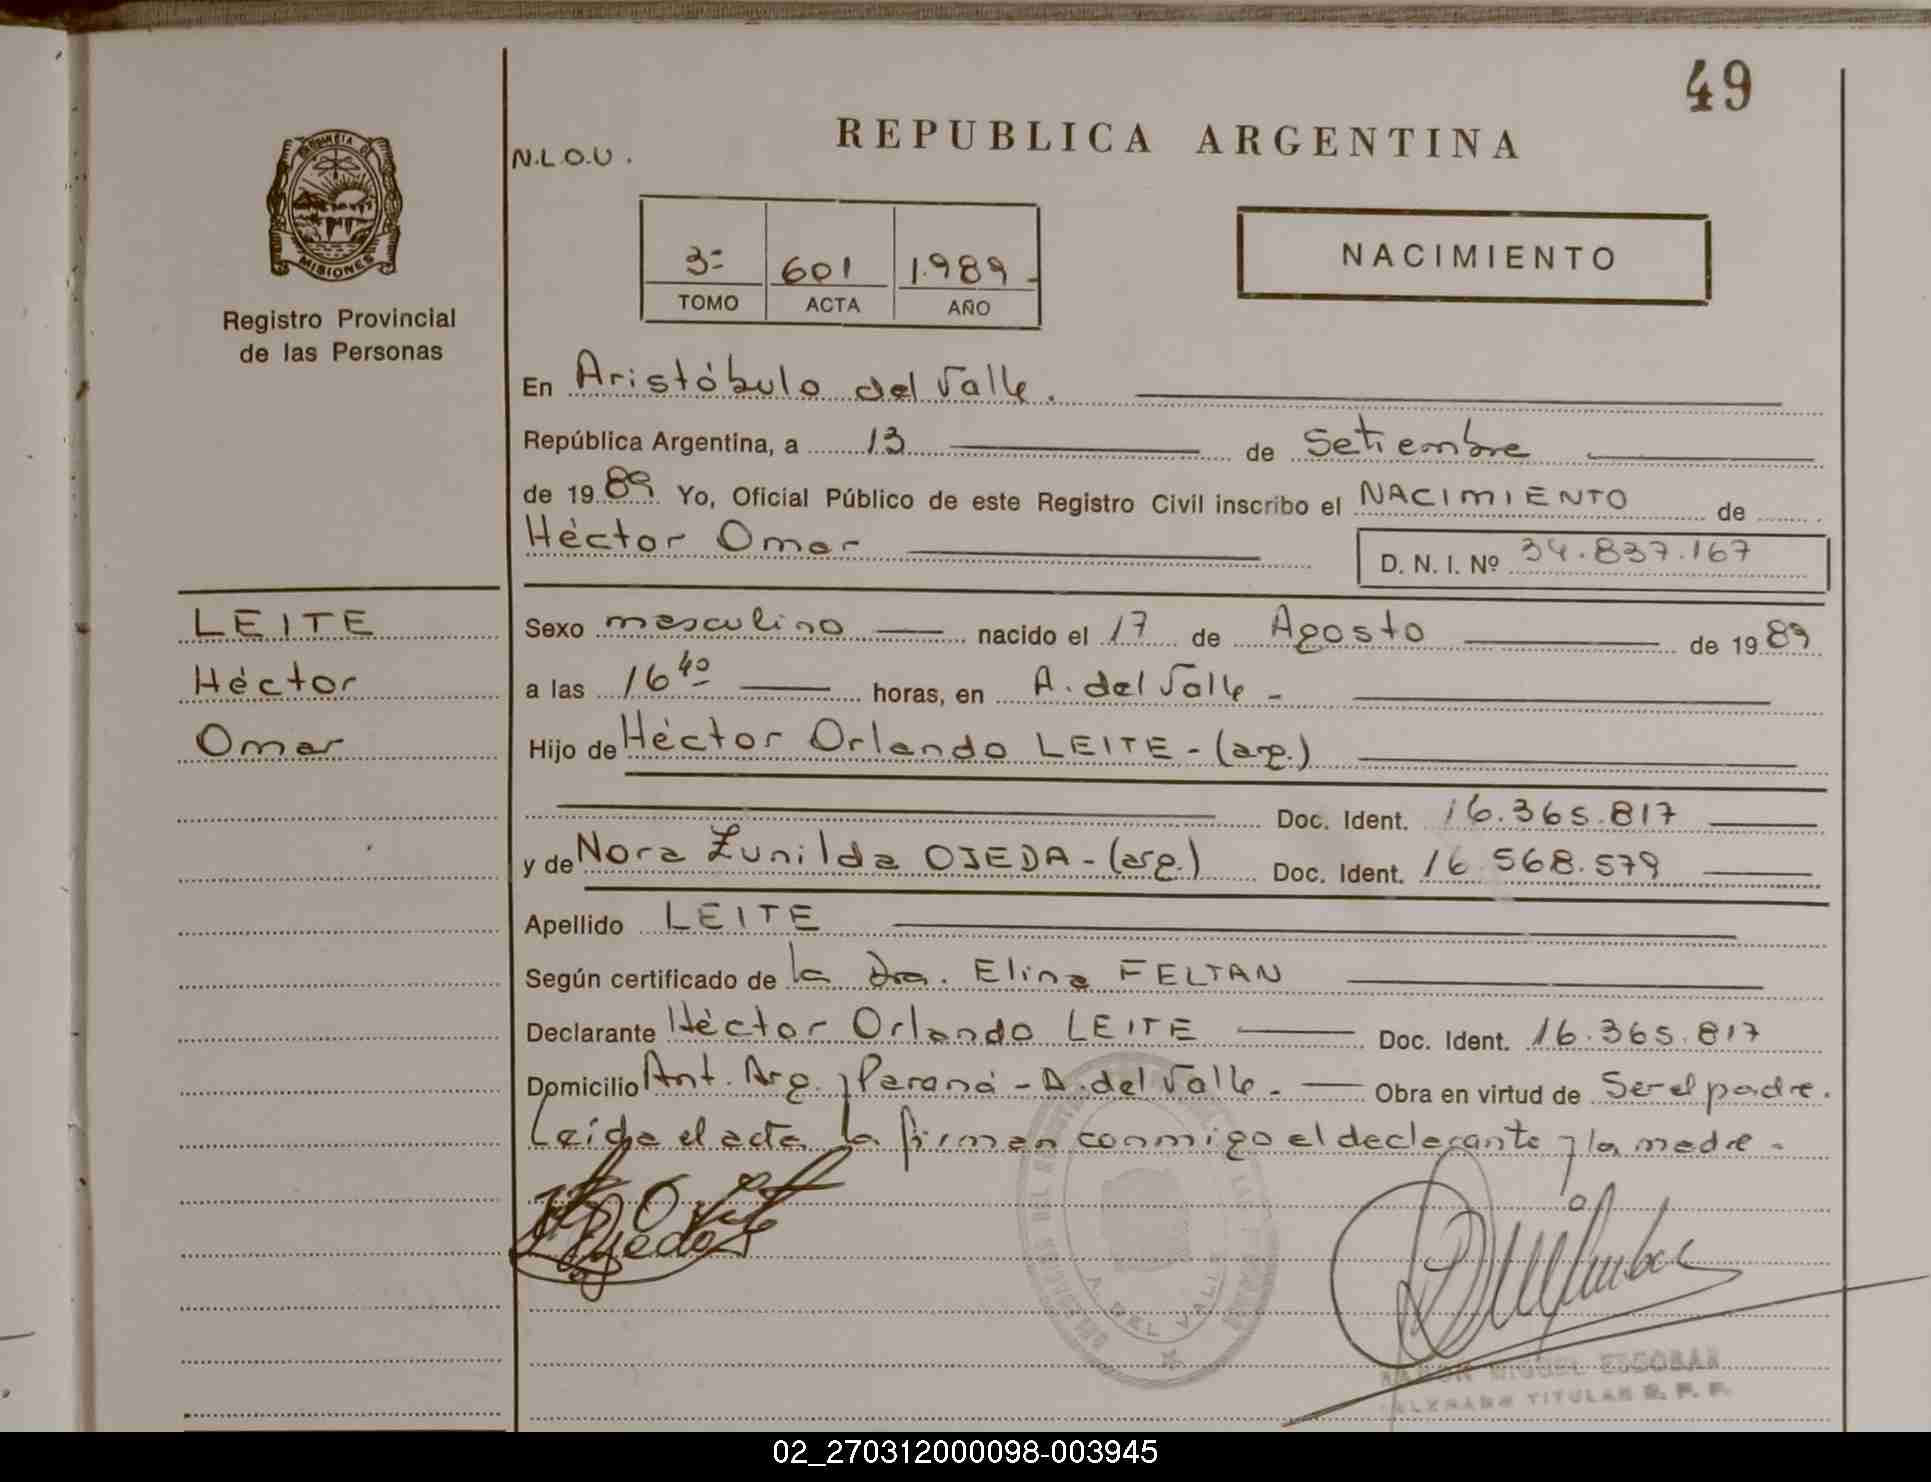 49
REPUBLICA ARGENTINA
N.L.O.U.
PROVINCIA DE
MISIONES
Registro Provincial
de las Personas
3º 601 1.989
TOMO ACTA AÑO
NACIMIENTO
En Aristóbulo del Valle.
República Argentina, a 13 de Setiembre
de 1989 Yo, Oficial Público de este Registro Civil inscribo el NACIMIENTO de
Héctor Omar D. N. I. Nº 34.837.167
LEITE
Héctor
Omar
Sexo masculino nacido el 17 de Agosto de 1989
a las 16 40 horas, en A. del Valle -
Hijo de Héctor Orlando LEITE - (arg.)
Doc. Ident. 16.365.817
y de Nora Zunilda OJEDA - (arg.) Doc. Ident. 16.568.579
Apellido LEITE
Según certificado de la Dra. Elina FELTAN
Declarante Héctor Orlando LEITE Doc. Ident. 16.365.817
Domicilio Ant. Arg. y Paraná - A. del Valle. - Obra en virtud de Ser el padre.
Leída el acta la firman conmigo el declarante y la madre -
A. DEL VALLE
RAMON MIGUEL ESCOBAR
TITULAR R. P. P.
02_270312000098-003945